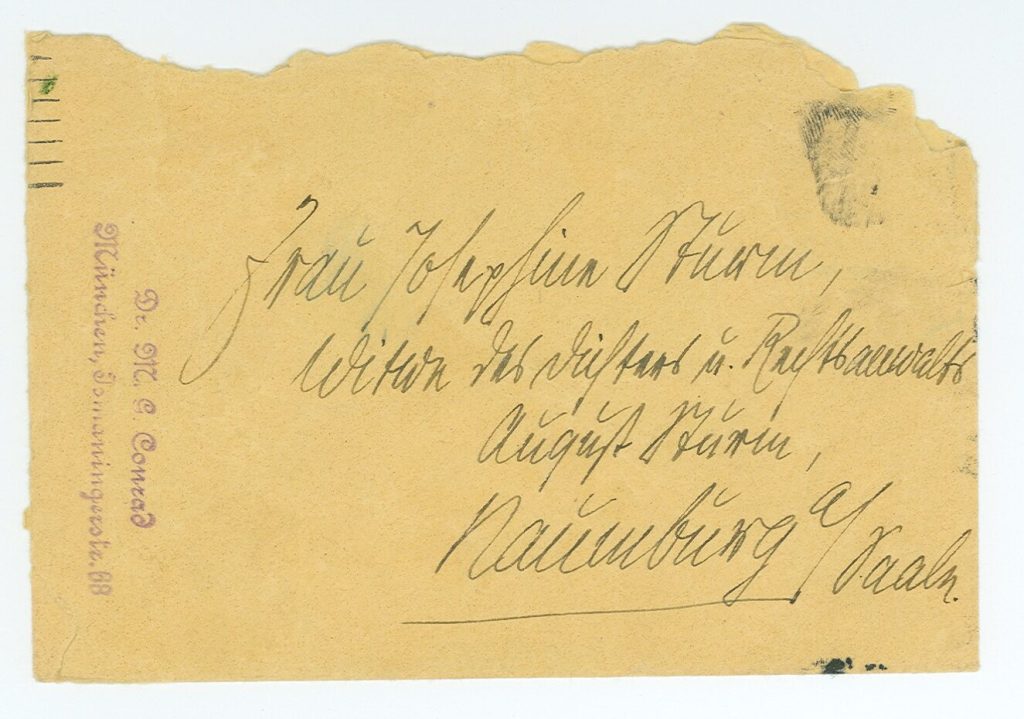 Frau Josephine Sturm,
Witwe des Dichters u. Rechtsanwalts
August Sturm,
Naumburg a/Saale.
Dr. M. G. Conrad
München, Ismaningerstr. 68